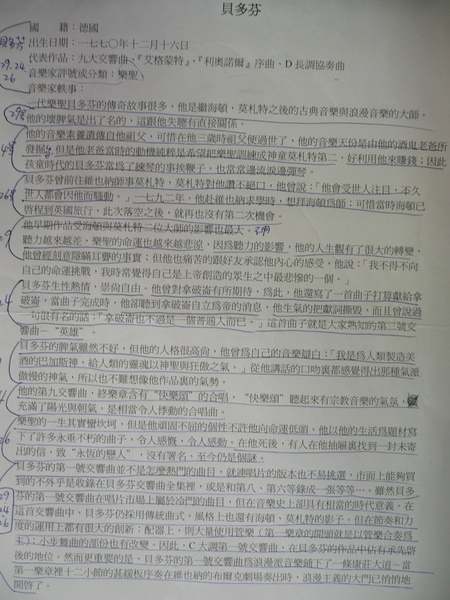 貝多芬
國　　籍：德國
出生日期：一七七○年十二月十六日
代表作品：九大交響曲、『艾格蒙特』、『利奧諾爾』序曲、D長調協奏曲
音樂家評號或分類：樂聖
音樂家軼事：
一代樂聖貝多芬的傳奇故事很多，他是繼海頓，莫札特之後的古典音樂與浪漫音樂的大師。
他的壞脾氣是出了名的，這跟他失聰有直接關係。
他的音樂素養遺傳自他祖父，可惜在他三歲時祖父便過世了，他的音樂天份是由他的酒鬼老爸所
發掘，但是他老爸當時的動機純粹是希望把樂聖訓練成神童莫札特第二，好利用他來賺錢；因此
孩童時代的貝多芬常爲了練琴的事挨鞭子，也常常邊流淚邊彈琴。
貝多芬曾前往維也納師事莫札特，莫札特對他讚不絕口，他曾說：「他會受世人注目，不久
世人都會因他而騷動。」一七九二年，他赴維也納求學時，想拜海頓爲師；可惜當時海頓已
啓程到英國旅行，此次落空之後，就再也沒有第二次機會。
他早期作品受海頓與莫札特二位大師的影響也最大。
聽力越來越差，樂聖的命運也越來越悲涼，因爲聽力的影響，他的人生觀有了很大的轉變，
他曾經刻意隱瞞耳聾的事實；但他也痛苦的跟好友承認他內心的感受，他說：「我不得不向
自己的命運挑戰，我時常覺得自己是上帝創造的眾生之中最悲慘的一個。」
貝多芬生性熱情，崇尚自由，他曾對拿破崙有所期待，爲此，他還寫了一首曲子打算獻給拿
破崙，當曲子完成時，他卻聽到拿破崙自立爲帝的消息，他生氣的把獻詞撕毀，而且曾說過
一句很有名的話：「拿破崙也不過是一個普通人而已。」這首曲子就是大家熟知的第三號交
響曲－"英雄"。
貝多芬的脾氣雖然不好，但他的人格很高尚，他曾爲自己的音樂辯白：「我是爲人類製造美
酒的巴加斯神，給人類的靈魂以神聖與狂傲之氣。」從他講話的口吻裏都感覺得出那種氣派
傲慢的神氣，所以也不難想像他作品裏的氣勢。
他的第九交響曲，終樂章含有"快樂頌"的合唱，"快樂頌"聽起來有宗教音樂的氣氛，
充滿了陽光與朝氣，是相當令人悸動的合唱曲。
樂聖的一生其實蠻坎坷，但是他頑固不屈的個性不許他向命運低頭，他以他的生活爲題材寫
下了許多永垂不朽的曲子，令人感慨，令人感動。在他死後，有人在他抽屜裏找到一封未寄
出的信，致"永恆的戀人"，沒有署名，至今仍是個謎。
貝多芬的第一號交響曲並不是怎麼熱門的曲目，就連唱片的版本也不易挑選，市面上能夠買
到的不外乎是收錄在貝多芬交響曲全集裡，或是和第八、第六等錄成一張等等…雖然貝多
芬的第一號交響曲在唱片市場上屬於冷門的曲目，但在音樂史上卻具有相當的時代意義，在
這首交響曲中，貝多芬仍採用傳統曲式，風格上也還有海頓，莫札特的影子，但在節奏和力
度的運用上都有很大的創新；配器上，則大量使用管樂（第一樂章的開頭就是以管樂合奏爲
主）；小步舞曲的部份也有改變，因此，C大調第一號交響曲，在貝多芬的作品中佔有承先啓
後的地位，然而更重要的是，貝多芬的第一號交響曲爲浪漫派音樂鋪下了一條康莊大道－當
第一樂章裡十二小節的甚緩板序奏在維也納的布爾克劇場奏出時，浪漫主義的大門已悄悄地
開啓了。
29.24
26